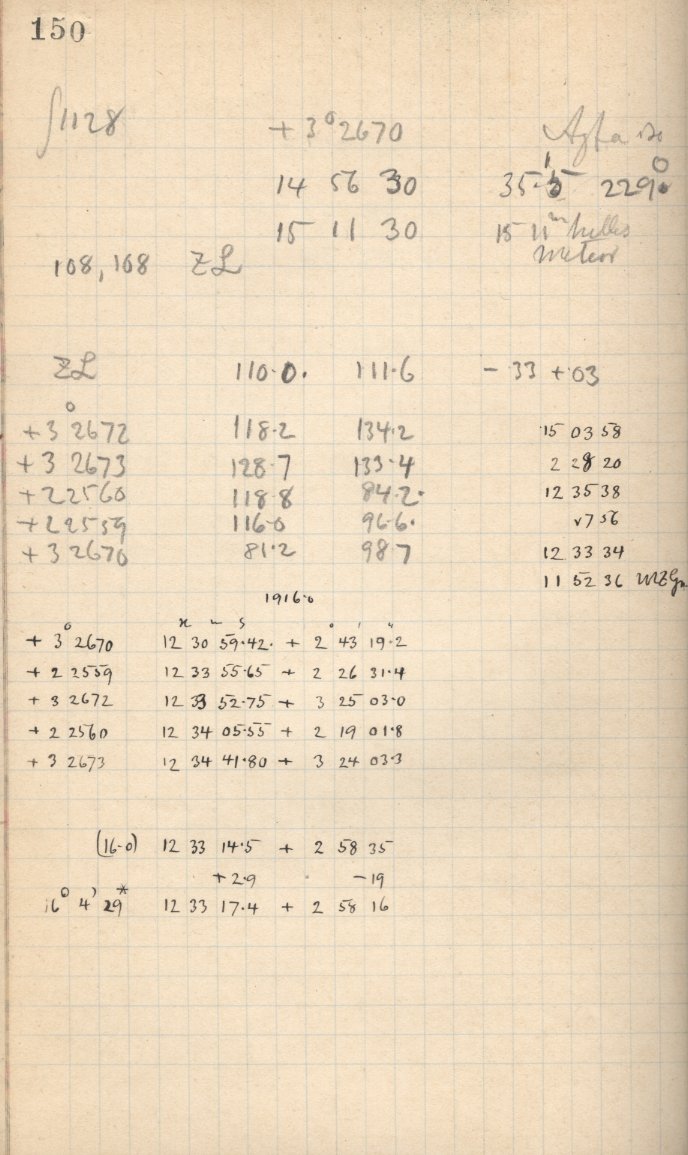 150
∫1128 +3° 2670
14 56 30 35.5 229°
15 11 30 15 11ᵐ
meteor
108, 108 ZL
ZL 110.0. 111.6 - .33 +.03
+3° 2672 118.2 134.2 15 03 58
+3 2673 128.7 133.4 2 28 20
+2 2560 118.8 84.2. 12 35 38
+2 2559 116.0 96.6. 7 56
+3 2670 81.2 98.7 12 33 34
11 52 36
1916.0
h m s ° ' "
+ 3° 2670 12 30 59.42. + 2 43 19.2
+ 2 2559 12 33 55.65 + 2 26 31.4
+ 3 2672 12 33 52.75 + 3 25 03.0
+ 2 2560 12 34 05.55 + 2 19 01.8
+ 3 2673 12 34 41.80 + 3 24 03.3
(16.0) 12 33 14.5 + 2 58 35
+2.9 -19
16° 4' 29* 12 33 17.4 + 2 58 16